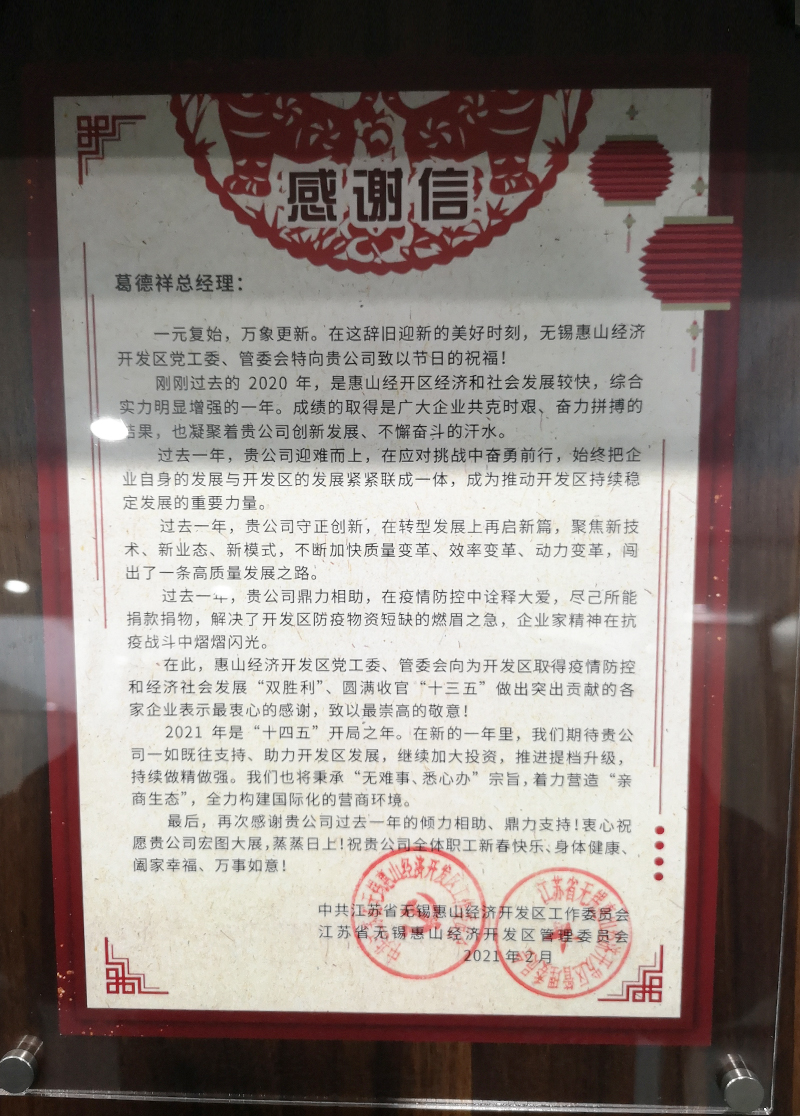 感谢信
葛德祥总经理：
一元复始，万象更新。在这辞旧迎新的美好时刻，无锡惠山经济
开发区党工委、管委会特向贵公司致以节日的祝福！
刚刚过去的 2020 年，是惠山经开区经济和社会发展较快，综合
实力明显增强的一年。成绩的取得是广大企业共克时艰、奋力拼搏的
结果，也凝聚着贵公司创新发展、不懈奋斗的汗水。
过去一年，贵公司迎难而上，在应对挑战中奋勇前行，始终把企
业自身的发展与开发区的发展紧紧联成一体，成为推动开发区持续稳
定发展的重要力量。
过去一年，贵公司守正创新，在转型发展上再启新篇，聚焦新技
术、新业态、新模式，不断加快质量变革、效率变革、动力变革，闯
出了一条高质量发展之路。
过去一年，贵公司鼎力相助，在疫情防控中诠释大爱，尽己所能
捐款捐物，解决了开发区防疫物资短缺的燃眉之急，企业家精神在抗
疫战斗中熠熠闪光。
在此，惠山经济开发区党工委、管委会向为开发区取得疫情防控
和经济社会发展“双胜利”、圆满收官“十三五”做出突出贡献的各
家企业表示最衷心的感谢，致以最崇高的敬意！
2021 年是“十四五”开局之年。在新的一年里，我们期待贵公
司一如既往支持、助力开发区发展，继续加大投资，推进提档升级，
持续做精做强。我们也将秉承“无难事、悉心办”宗旨，着力营造“亲
商生态”，全力构建国际化的营商环境。
最后，再次感谢贵公司过去一年的倾力相助、鼎力支持！衷心祝
愿贵公司宏图大展，蒸蒸日上！祝贵公司全体职工新春快乐、身体健康、
阖家幸福、万事如意！
中共江苏省无锡惠山经济开发区工作委员会
江苏省无锡惠山经济开发区管理委员会
2021 年 2 月